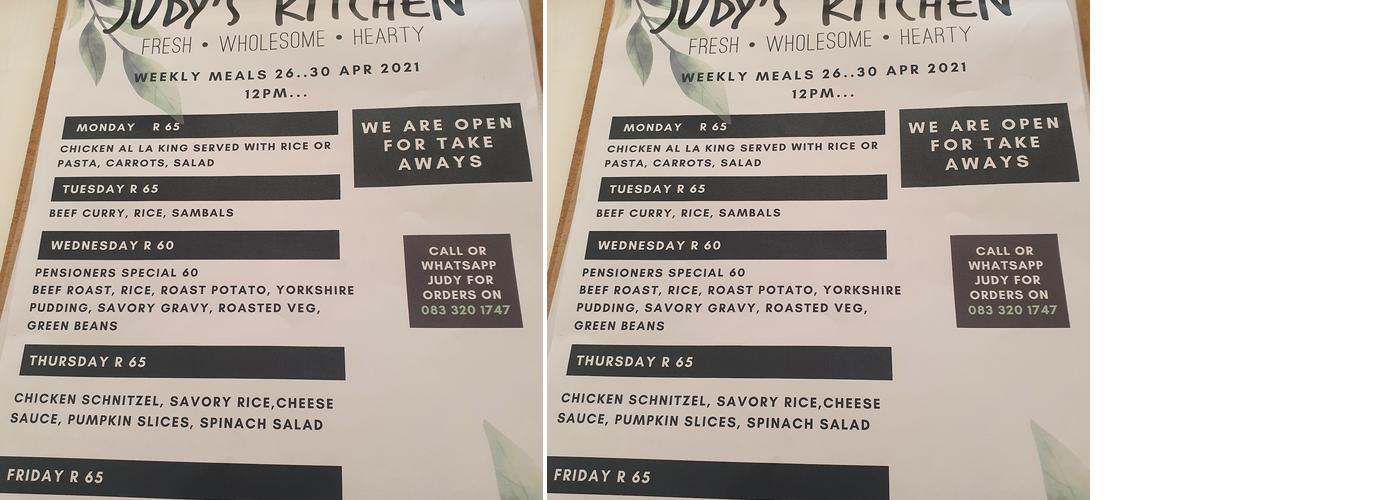 JUDY'S KITCHEN
FRESH • WHOLESOME • HEARTY
WEEKLY MEALS 26..30 APR 2021
12PM...
MONDAY R 65
CHICKEN AL LA KING SERVED WITH RICE OR
PASTA, CARROTS, SALAD
TUESDAY R 65
BEEF CURRY, RICE, SAMBALS
WEDNESDAY R 60
PENSIONERS SPECIAL 60
BEEF ROAST, RICE, ROAST POTATO, YORKSHIRE
PUDDING, SAVORY GRAVY, ROASTED VEG,
GREEN BEANS
THURSDAY R 65
CHICKEN SCHNITZEL, SAVORY RICE,CHEESE
SAUCE, PUMPKIN SLICES, SPINACH SALAD
FRIDAY R 65
WE ARE OPEN
FOR TAKE
AWAYS
CALL OR
WHATSAPP
JUDY FOR
ORDERS ON
083 320 1747
JUDY'S KITCHEN
FRESH • WHOLESOME • HEARTY
WEEKLY MEALS 26..30 APR 2021
12PM...
MONDAY R 65
CHICKEN AL LA KING SERVED WITH RICE OR
PASTA, CARROTS, SALAD
TUESDAY R 65
BEEF CURRY, RICE, SAMBALS
WEDNESDAY R 60
PENSIONERS SPECIAL 60
BEEF ROAST, RICE, ROAST POTATO, YORKSHIRE
PUDDING, SAVORY GRAVY, ROASTED VEG,
GREEN BEANS
THURSDAY R 65
CHICKEN SCHNITZEL, SAVORY RICE,CHEESE
SAUCE, PUMPKIN SLICES, SPINACH SALAD
FRIDAY R 65
WE ARE OPEN
FOR TAKE
AWAYS
CALL OR
WHATSAPP
JUDY FOR
ORDERS ON
083 320 1747